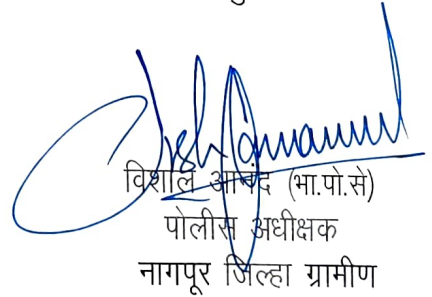 विशाल आनंद (भा.पो.से)
पोलीस अधीक्षक
नागपूर जिल्हा ग्रामीण